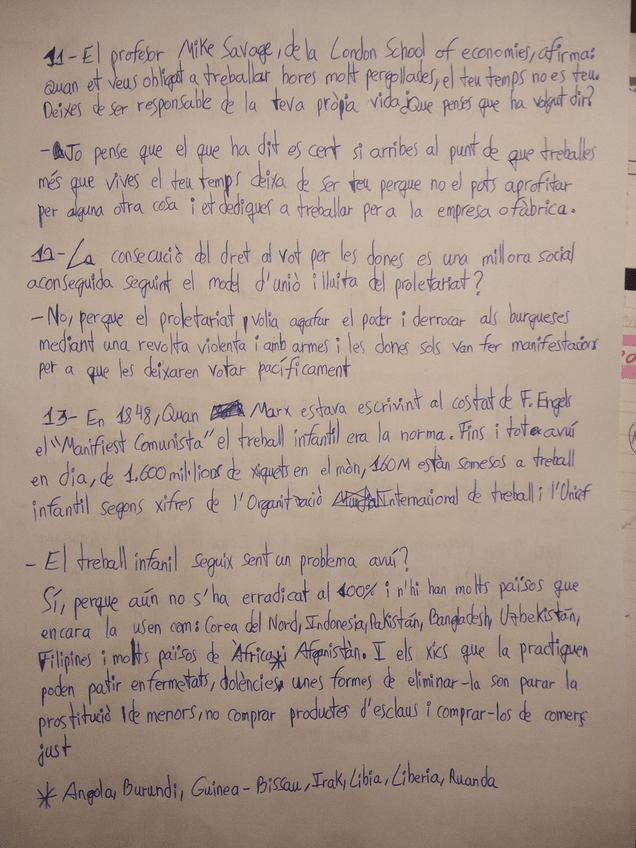 11- El profesor Mike Savage, de la London School of economies, afirma:
Quan et veus obligat a treballar hores molt perqollades, el teu temps no es teu.
Deixes de ser responsable de la teva pròpia vida ¿Que penses que ha volgut dir?
- Jo pense que el que ha dit es cert si arribes al punt de que treballes
més que vives el teu temps deixa de ser teu perque no el pots aprofitar
per alguna otra cosa i et dediques a treballar per a la empresa o fàbrica.
12- La consecució del dret al vot per les dones es una millora social
aconseguida seguint el model d'unió i lluita del proletariat?
- No, perque el proletariat volia agafar el poder i derrocar als burgueses
mediant una revolta violenta i amb armes i les dones sols van fer manifestacions
per a que les deixaren votar pacíficament
13- En 1848, Quan Marx estava escrivint al costat de F. Engels
el "Manifiest Comunista" el treball infantil era la norma. Fins i tot avuí
en dia, de 1.600 mil·lions de xiquets en el món, 160M están somesos a treball
infantil segons xifres de l'Organització Internacional de treball i l'Unicef
- El treball infanil seguix sent un problema avuí?
Sí, perque aún no s'ha erradicat al 100% i n'hi han molts països que
encara la usen com: Corea del Nord, Indonesia, Pakistán, Bangladesh, Uzbekistán,
Filipines i molts països de Africa* i Afganistán. I els xics que la practiquen
poden patir enfermetats, dolències, unes formes de eliminar-la son parar la
prostitució de menors, no comprar productes d'esclaus i comprar-los de comerç
just
* Angola, Burundi, Guinea-Bissau, Irak, Libia, Liberia, Ruanda